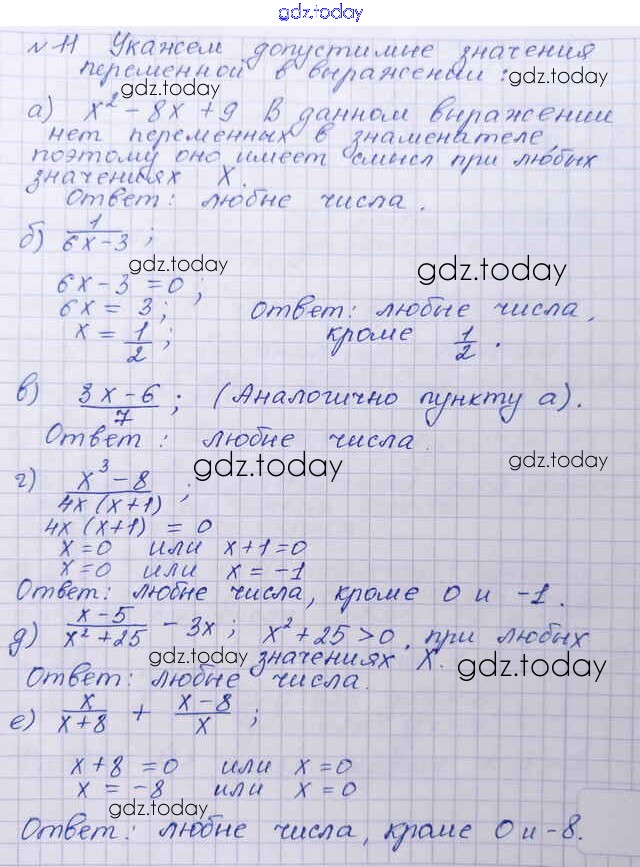 gdz.today
№ 11 Укажем допустимые значения
переменной в выражении:
gdz.today
gdz.today
а) x² - 8x + 9 В данном выражении
нет переменных в знаменателе,
поэтому оно имеет смысл при любых
значениях X.
gdz.today
gdz.today
Ответ: любые числа.
б) 1/(6x-3);
gdz.today
gdz.today
6x - 3 = 0;
6x = 3; Ответ: любые числа,
x = 1/2; кроме 1/2.
в) (3x-6)/7; (Аналогично пункту а).
Ответ: любые числа
gdz.today
gdz.today
г) (x³-8)/(4x(x+1));
4x(x+1) = 0
x=0 или x+1=0
x=0 или x=-1
Ответ: любые числа, кроме 0 и -1.
д) (x-5)/(x²+25) - 3x; x²+25>0, при любых
gdz.today значениях X.
gdz.today
Ответ: любые числа.
е) x/(x+8) + (x-8)/x;
x+8 = 0 или x=0
x = -8 или x=0
gdz.today
Ответ: любые числа, кроме 0 и -8.